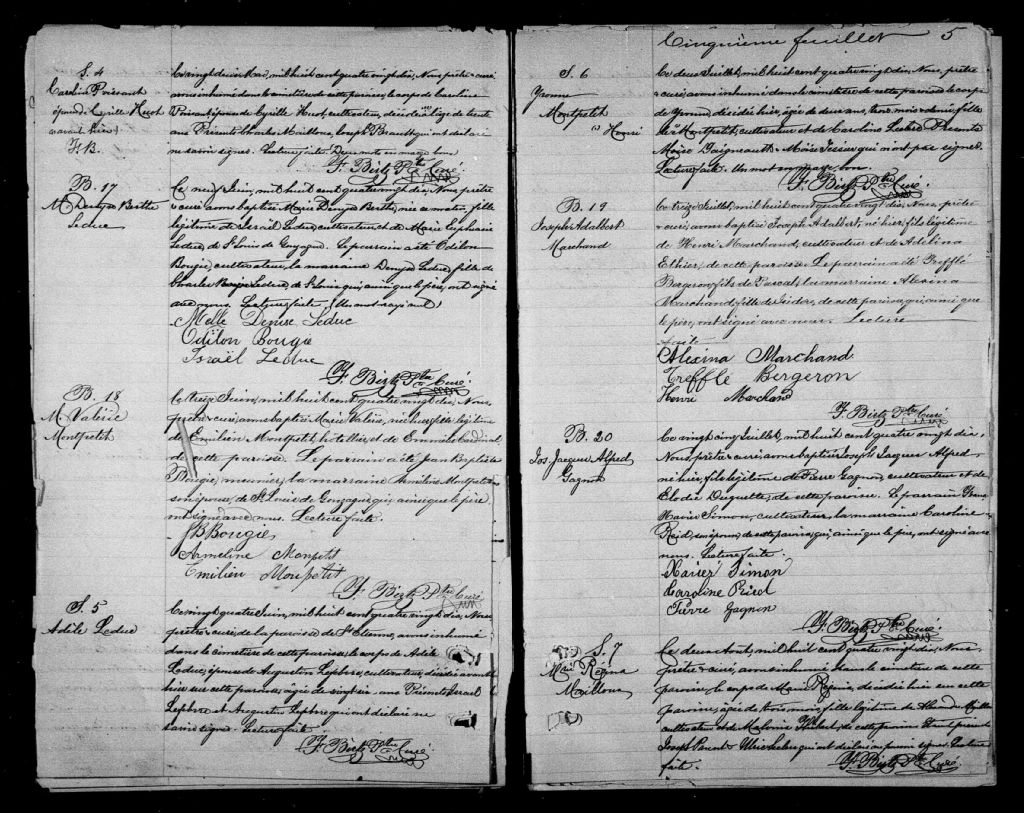 S. 4
Caroline Poissant
épouse de Cyrille Huot
F. B.
Le vingt deux Mai, mil huit cent quatre vingt dix, Nous, prêtre - curé
avons inhumé dans le cimetière de cette paroisse, le corps de Caroline
Poissant, épouse de Cyrille Huot, cultivateur, décédée à l'âge de trente
ans Présents Charles Mailloux, Joseph Beault qui ont déclaré
ne savoir signer. Lecture faite. Deux mots en marge bons
F. Birtz Ptre Curé
B. 17
M. Denyse Berthe
Leduc
Le neuf Juin, mil huit cent quatre vingt dix, Nous, prêtre
- curé, avons baptisé Marie Denyse Berthe, née ce matin, fille
légitime de Israël Leduc, cultivateur et de Marie
Leduc, de St Louis de Gonzague. Le parrain a été Odilon
Bougie, cultivateur, la marraine Denyse Leduc, fille de
Charles Leduc, de St Louis qui, ainsi que le père, ont signé
avec nous. Lecture faite. (Un mot rayé nul)
Melle Denise Leduc
Odilon Bougie
Israël Leduc
F. Birtz Ptre Curé
B. 18
M. Valérie
Montpetit
Le treize Juin, mil huit cent quatre vingt dix, Nous,
prêtre - curé, avons baptisé Marie Valérie, née hier, fille légitime
de Emilien Montpetit, hôtellier, et de Cardinal
de cette paroisse. Le parrain a été Jean Baptiste
Bougie, meunier, la marraine Montpetit
son épouse, de St Louis de Gonzague, qui, ainsi que le père
ont signé avec nous. Lecture faite.
JB Bougie
Armeline Monpetit
Emilien Monpetit
F. Birtz Ptre Curé
S. 5
Adèle Leduc
Le vingt quatre Juin, mil huit cent quatre vingt dix, Nous,
prêtre - curé, de la paroisse de St Etienne, avons inhumé
dans le cimetière de cette paroisse, le corps de Adèle
Leduc, épouse de Augustin Lefebvre, cultivateur, décédée avant
hier sur cette paroisse, âgée de ans Présents Israël
Lefebvre et Augustin Lefebvre qui ont déclaré ne
savoir signer. Lecture faite.
F. Birtz Ptre Curé
Cinquième feuillet 5
S. 6
Yvonne
Montpetit
Henri
Le deux Juillet, mil huit cent quatre vingt dix, Nous, prêtre
- curé, avons inhumé dans le cimetière de cette paroisse le corps
de Yvonne, décédée hier, âgée de deux ans, trois mois et demi, fille
de Montpetit, cultivateur et de Caroline Présents
Moïse Daigneault - Moïse qui n'ont pas signé.
Lecture faite. Un mot en marge bon.
F. Birtz Ptre Curé
B. 19
Joseph Adalbert
Marchand
Le treize Juillet, mil huit cent quatre vingt dix, Nous, prêtre
- curé, avons baptisé Joseph Adalbert, né hier, fils légitime
de Henri Marchand, cultivateur et de Adelina
Ethier, de cette paroisse. Le parrain a été Trefflé
Bergeron fils de Pascal, la marraine Alexina
Marchand, fille de Isidore, de cette paroisse, qui, ainsi que
le père, ont signé avec nous. Lecture
faite
Alexina Marchand
Trefflé Bergeron
Henri Marchand
F. Birtz Ptre Curé
B. 20
Jos. Jacques Alfred
Gagnon
Le vingt cinq Juillet, mil huit cent quatre vingt dix,
Nous, prêtre - curé, avons baptisé Joseph Jacques Alfred
né hier, fils légitime de Pierre Gagnon, cultivateur et de
Elodie Duquette, de cette paroisse. Le parrain
Xavier Simon, cultivateur, la marraine Caroline
Reid, son épouse, de cette paroisse, qui, ainsi que le père, ont signé avec
nous. Lecture faite.
Xavier Simon
Carroline Ried
Pierre Gagnon
F. Birtz Ptre Curé
S. 7
Marie Régina
Mailloux
Le deux Août, mil huit cent quatre vingt dix, Nous
prêtre - curé, avons inhumé dans le cimetière de cette
paroisse le corps de Marie Régina, décédée hier sur cette
paroisse, âgée de trois mois, fille légitime de
cultivateur et de Hébert, de cette paroisse Etaient présents
Joseph qui ont déclaré ne savoir signer. Lecture
faite.
F. Birtz Ptre Curé